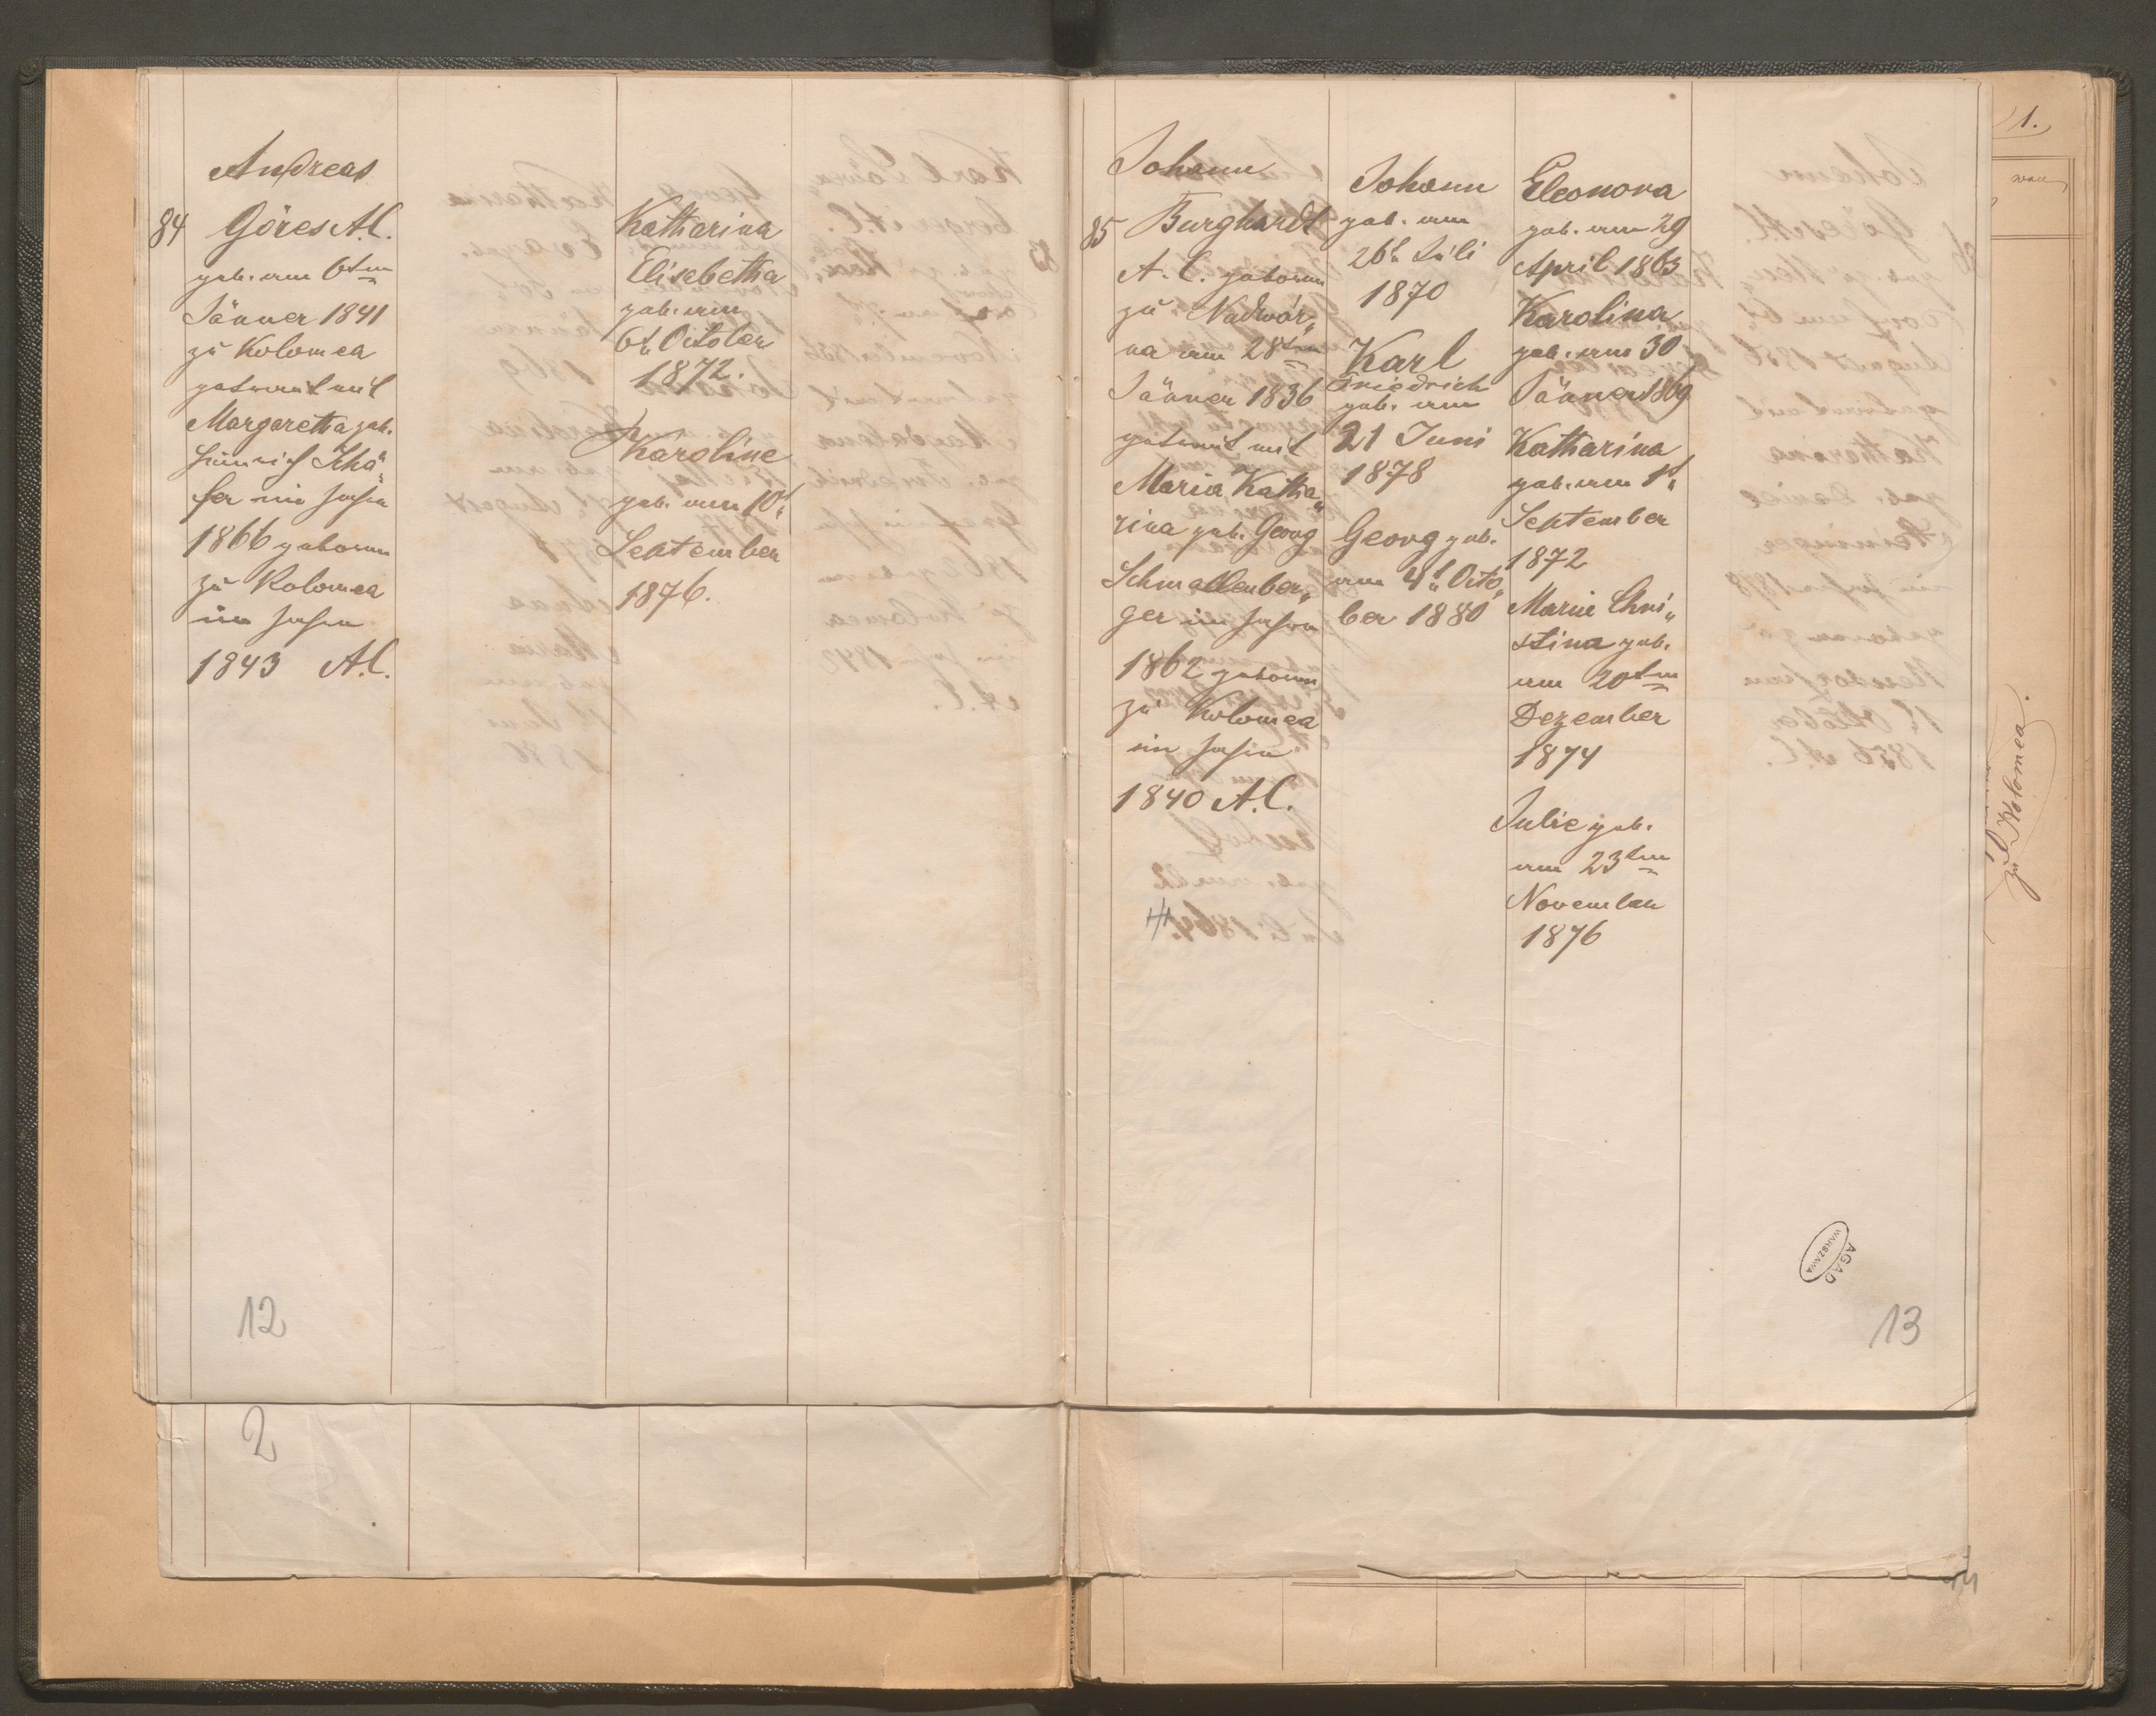 Andreas
84 Göres A.C.
geb. am 6ten
Jänner 1841
zu Kolomea
getraut mit
Margaretha geb.
Heinrich Schä„
fer im Jahre
1866 geboren
zu Kolomea
im Jahre
1843 A.C.
Katharina
Elisebetha
geb. am
6t. October
1872.
Karoline
geb. am 10t.
September
1876.
12
2
Johann
85 Burghardt
A.C. geboren
zu Nadwór„
na am 28ten
Jänner 1836
getraut mit
Maria Katha„
rina geb. Georg
Schmallenber„
ger im Jahre
1862 geboren
zu Kolomea
im Jahre
1840 A.C.
Johann
geb. am
26t. Juli
1870
Karl
Friedrich
geb. am
21 Juni
1878
Georg geb.
am 4t. Octo„
ber 1880
Eleonora
geb. am 29
April 1863
Karolina
geb. am 30
Jänner 1869
Katharina
geb. am 1t.
September
1872
Marie Chri„
stina geb.
am 20ten
Dezember
1874
Julie geb.
am 23ten
November
1876
AGAD
WARSZAWA
13
1.
zu Kolomea.